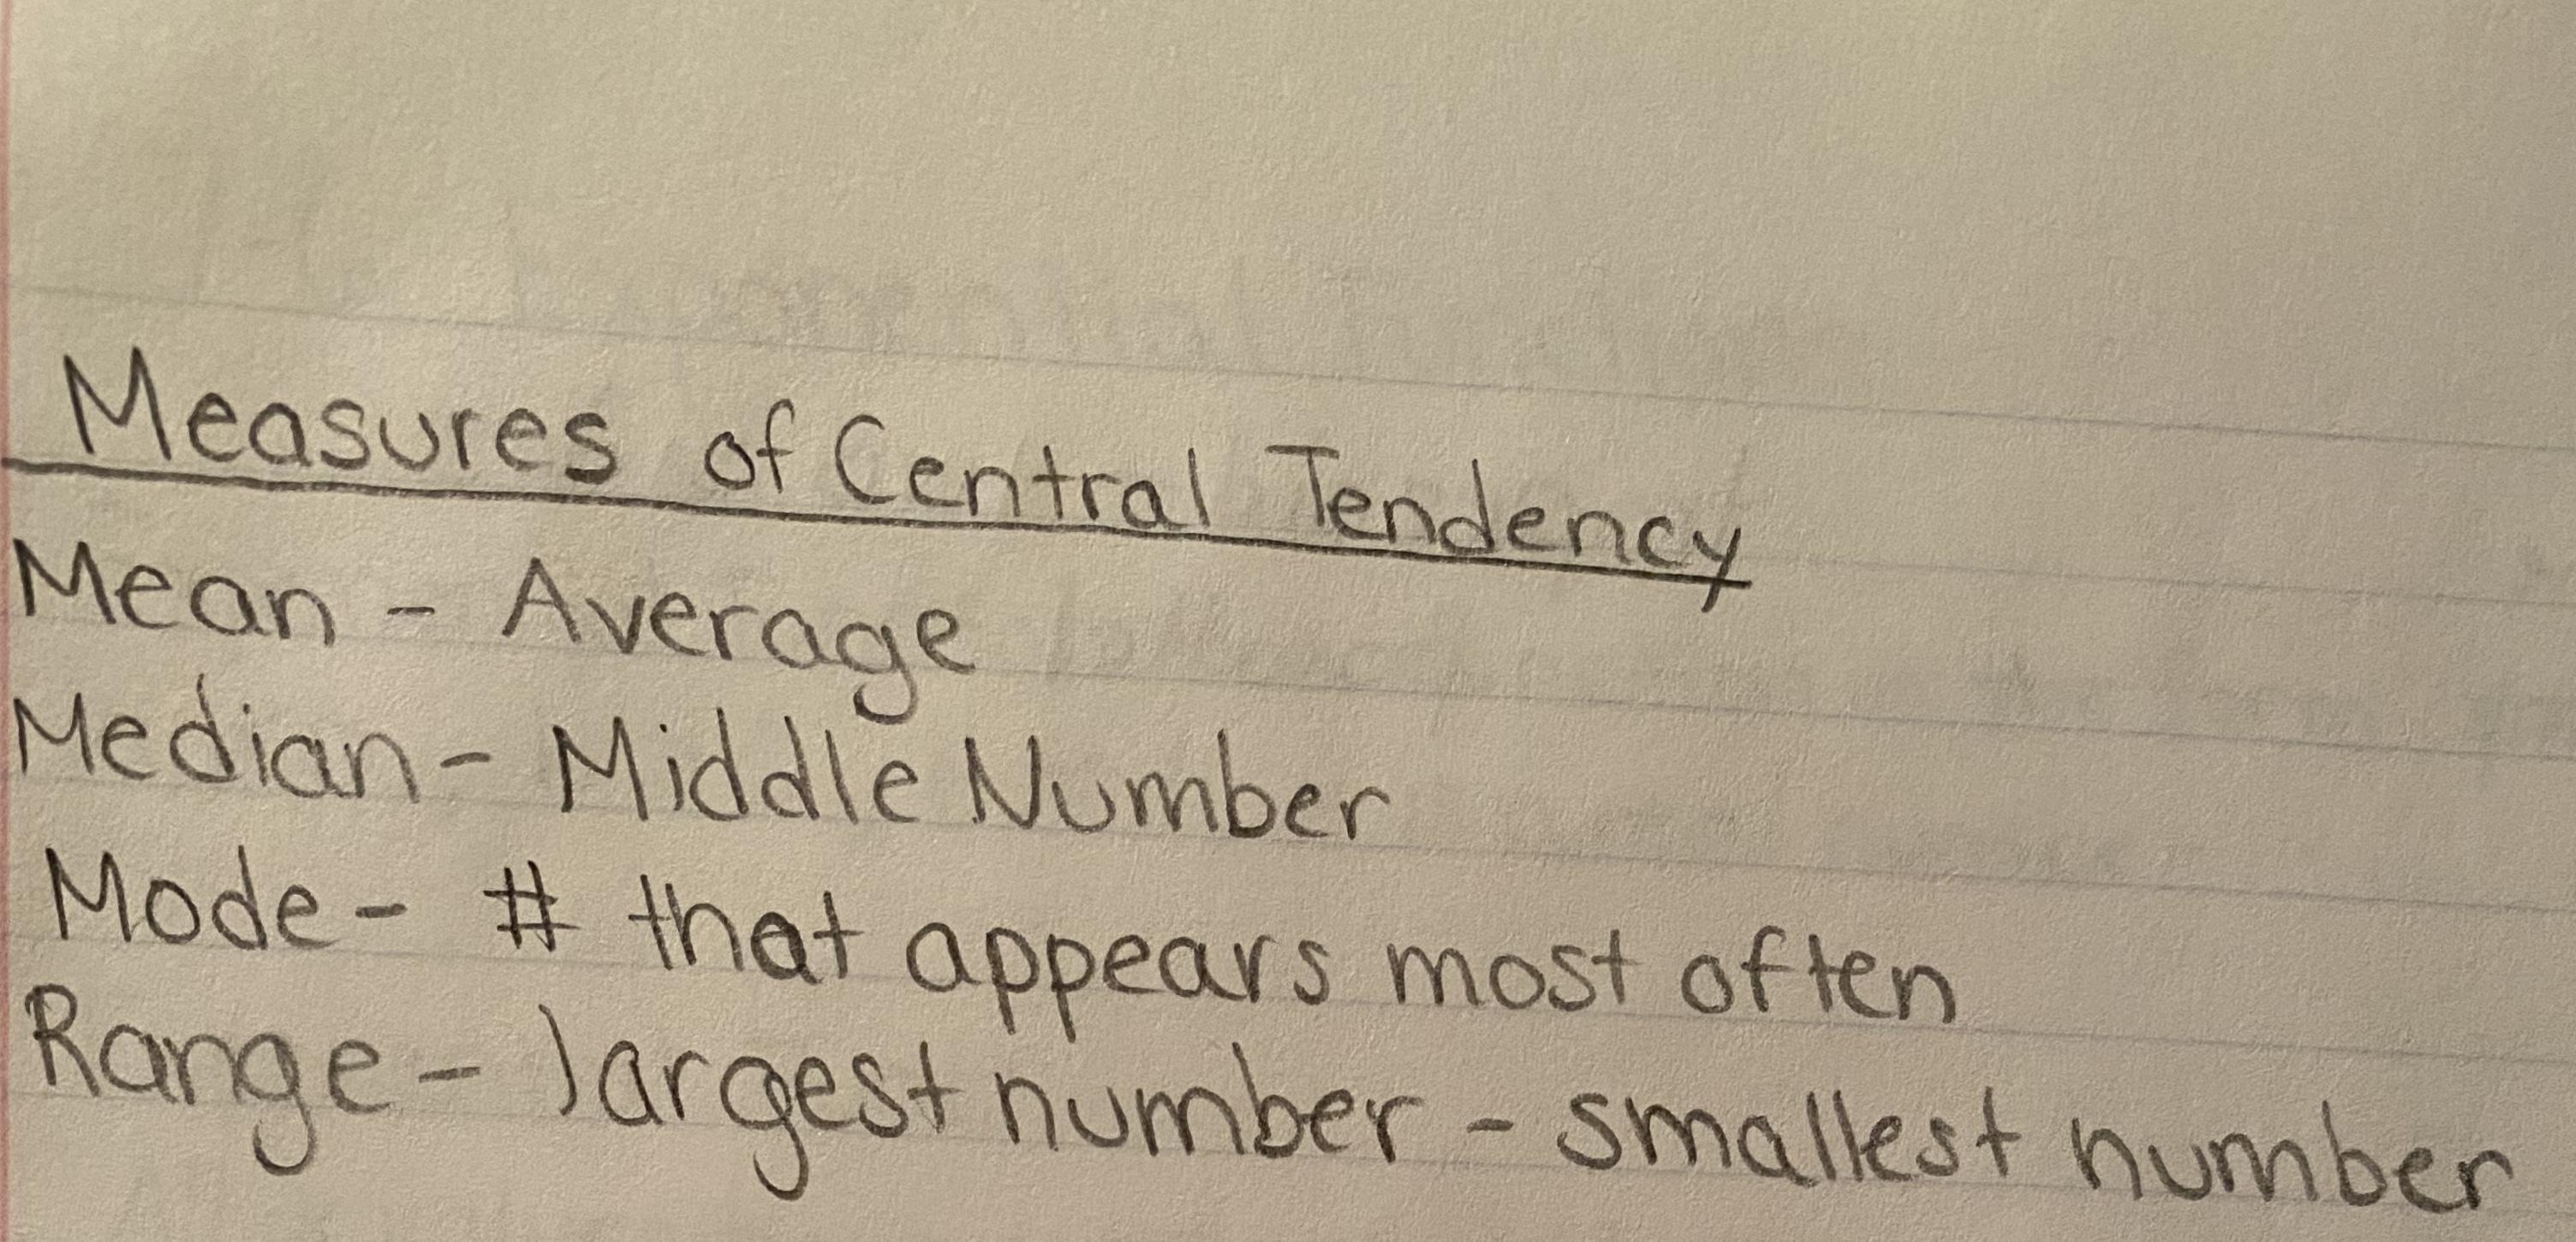 Measures of Central Tendency
Mean - Average
Median - Middle Number
Mode - # that appears most often
Range - largest number - smallest number